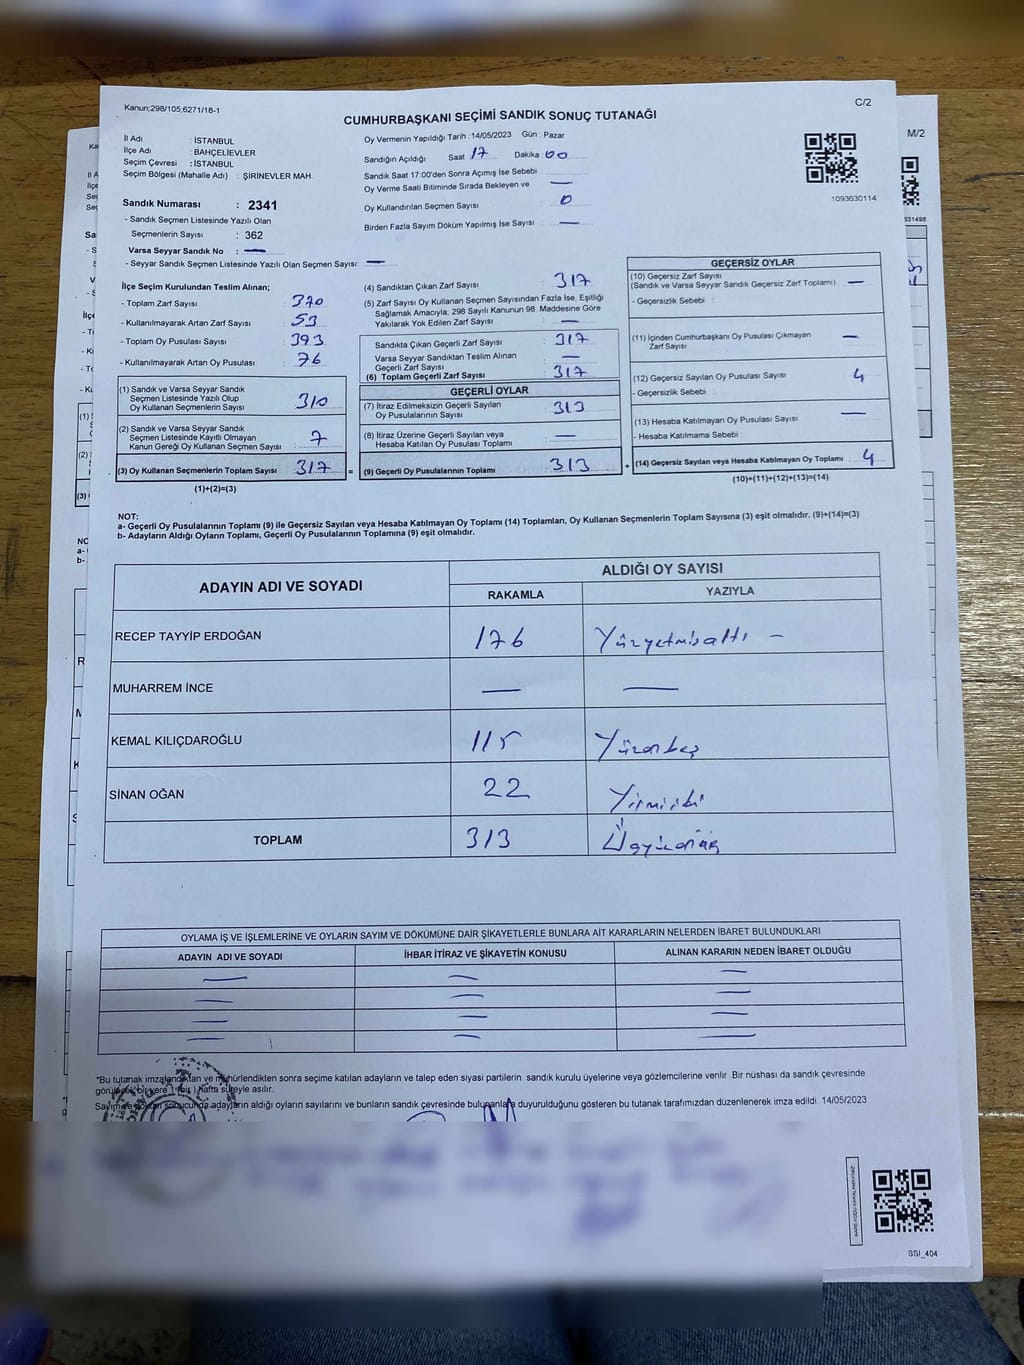 Kanun;298/105,6271/18-1
C/2
CUMHURBAŞKANI SEÇİMİ SANDIK SONUÇ TUTANAĞI
M/2
İl Adı : İSTANBUL
İlçe Adı : BAHÇELİEVLER
Seçim Çevresi : İSTANBUL
Seçim Bölgesi (Mahalle Adı) : ŞİRİNEVLER MAH.
Sandık Numarası : 2341
- Sandık Seçmen Listesinde Yazılı Olan
Seçmenlerin Sayısı : 362
Varsa Seyyar Sandık No : —
- Seyyar Sandık Seçmen Listesinde Yazılı Olan Seçmen Sayısı: —
Oy Vermenin Yapıldığı Tarih : 14/05/2023 Gün : Pazar
Sandığın Açıldığı Saat 17 Dakika 00
Sandık Saat 17:00'den Sonra Açımış İse Sebebi :
Oy Verme Saati Bitiminde Sırada Bekleyen ve —
Oy Kullandırılan Seçmen Sayısı 0
Birden Fazla Sayım Döküm Yapılmış İse Sayısı : —
1093630114
İlçe Seçim Kurulundan Teslim Alınan;
- Toplam Zarf Sayısı : 370
- Kullanılmayarak Artan Zarf Sayısı : 53
- Toplam Oy Pusulası Sayısı : 393
- Kullanılmayarak Artan Oy Pusulası : 76
(1) Sandık ve Varsa Seyyar Sandık
Seçmen Listesinde Yazılı Olup
Oy Kullanan Seçmenlerin Sayısı : 310
(2) Sandık ve Varsa Seyyar Sandık
Seçmen Listesinde Kayıtlı Olmayan
Kanun Gereği Oy Kullanan Seçmen Sayısı : 7
(3) Oy Kullanan Seçmenlerin Toplam Sayısı : 317 =
(1)+(2)=(3)
(4) Sandıktan Çıkan Zarf Sayısı : 317
(5) Zarf Sayısı Oy Kullanan Seçmen Sayısından Fazla İse, Eşitliği
Sağlamak Amacıyla; 298 Sayılı Kanunun 98. Maddesine Göre
Yakılarak Yok Edilen Zarf Sayısı : —
Sandıkta Çıkan Geçerli Zarf Sayısı : 317
Varsa Seyyar Sandıktan Teslim Alınan
Geçerli Zarf Sayısı : —
(6) Toplam Geçerli Zarf Sayısı : 317
GEÇERLİ OYLAR
(7) İtiraz Edilmeksizin Geçerli Sayılan
Oy Pusulalarının Sayısı : 313
(8) İtiraz Üzerine Geçerli Sayılan veya
Hesaba Katılan Oy Pusulası Toplamı : —
(9) Geçerli Oy Pusulalarının Toplamı : 313 +
GEÇERSİZ OYLAR
(10) Geçersiz Zarf Sayısı
(Sandık ve Varsa Seyyar Sandık Geçersiz Zarf Toplamı) : —
- Geçersizlik Sebebi :
(11) İçinden Cumhurbaşkanı Oy Pusulası Çıkmayan
Zarf Sayısı : —
(12) Geçersiz Sayılan Oy Pusulası Sayısı : 4
- Geçersizlik Sebebi :
(13) Hesaba Katılmayan Oy Pusulası Sayısı : —
- Hesaba Katılmama Sebebi :
(14) Geçersiz Sayılan veya Hesaba Katılmayan Oy Toplamı : 4
(10)+(11)+(12)+(13)=(14)
NOT:
a- Geçerli Oy Pusulalarının Toplamı (9) ile Geçersiz Sayılan veya Hesaba Katılmayan Oy Toplamı (14) Toplamları, Oy Kullanan Seçmenlerin Toplam Sayısına (3) eşit olmalıdır. (9)+(14)=(3)
b- Adayların Aldığı Oyların Toplamı, Geçerli Oy Pusulalarının Toplamına (9) eşit olmalıdır.
ADAYIN ADI VE SOYADI
ALDIĞI OY SAYISI
RAKAMLA YAZIYLA
RECEP TAYYİP ERDOĞAN 176 Yüzyetmişaltı —
MUHARREM İNCE — —
KEMAL KILIÇDAROĞLU 115 Yüzonbeş
SİNAN OĞAN 22 Yirmiiki
TOPLAM 313 Üçyüzonüç
OYLAMA İŞ VE İŞLEMLERİNE VE OYLARIN SAYIM VE DÖKÜMÜNE DAİR ŞİKAYETLERLE BUNLARA AİT KARARLARIN NELERDEN İBARET BULUNDUKLARI
ADAYIN ADI VE SOYADI İHBAR İTİRAZ VE ŞİKAYETİN KONUSU ALINAN KARARIN NEDEN İBARET OLDUĞU
*Bu tutanak imzalandıktan ve mühürlendikten sonra seçime katılan adayların ve talep eden siyasi partilerin sandık kurulu üyelerine veya gözlemcilerine verilir. Bir nüshası da sandık çevresinde
görülecek bir yere 1 (bir) hafta süreyle asılır.
Sayım ve döküm sonucunda adayların aldığı oyların sayılarını ve bunların sandık çevresinde bulunanlara duyurulduğunu gösteren bu tutanak tarafımızdan düzenlenerek imza edildi. 14/05/2023
SSI_404